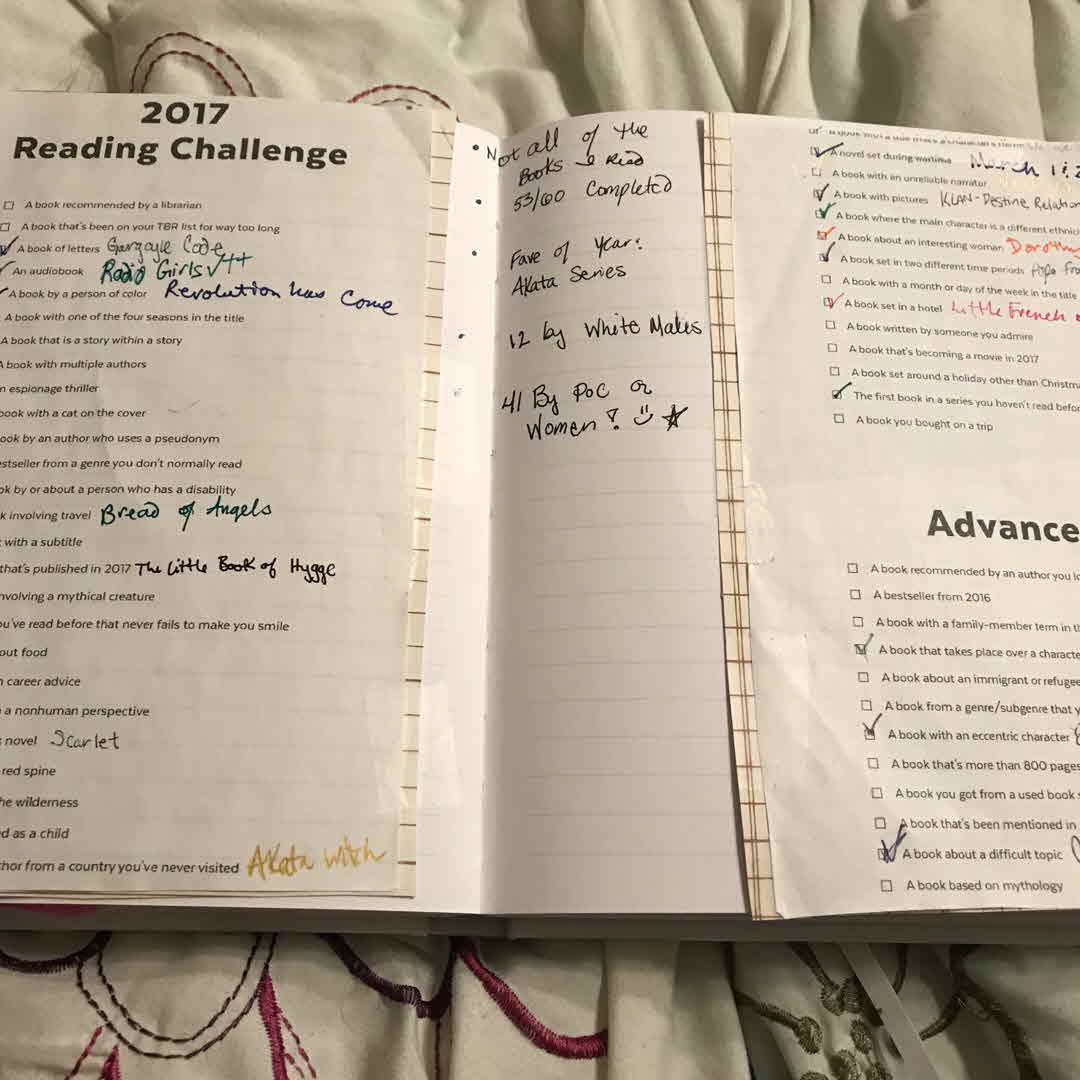 2017
Reading Challenge
A book recommended by a librarian
A book that's been on your TBR list for way too long
A book of letters Gargoyle Code
An audiobook Radio Girls ✓++
A book by a person of color Revolution has Come
A book with one of the four seasons in the title
A book that is a story within a story
A book with multiple authors
espionage thriller
book with a cat on the cover
by an author who uses a pseudonym
from a genre you don't normally read
by or about a person who has a disability
involving travel Bread of Angels
with a subtitle
that's published in 2017 The Little Book of Hygge
involving a mythical creature
you've read before that never fails to make you smile
food
career advice
a nonhuman perspective
novel Scarlet
red spine
wilderness
as a child
from a country you've never visited Akata witch
• Not all of the
Books I Read
• 53/60 Completed
Fave of Year:
Akata Series
12 by White Males
41 By POC or
Women! ☺ ☆
A novel set during wartime March
A book with an unreliable narrator
A book with pictures KLAN-Destine
A book where the main character is a different
A book about an interesting woman
A book set in two different time periods
A book with a month or day of the week in the title
A book set in a hotel Little French
A book written by someone you admire
A book that's becoming a movie in 2017
A book set around a holiday other than
The first book in a series you haven't read
A book you bought on a trip
A book recommended by an author you
A bestseller from 2016
A book with a family-member term in
A book that takes place over a
A book about an immigrant or
A book from a genre/subgenre that
A book with an eccentric character
A book that's more than 800 pages
A book you got from a used book
A book that's been mentioned in
A book about a difficult topic
A book based on mythology